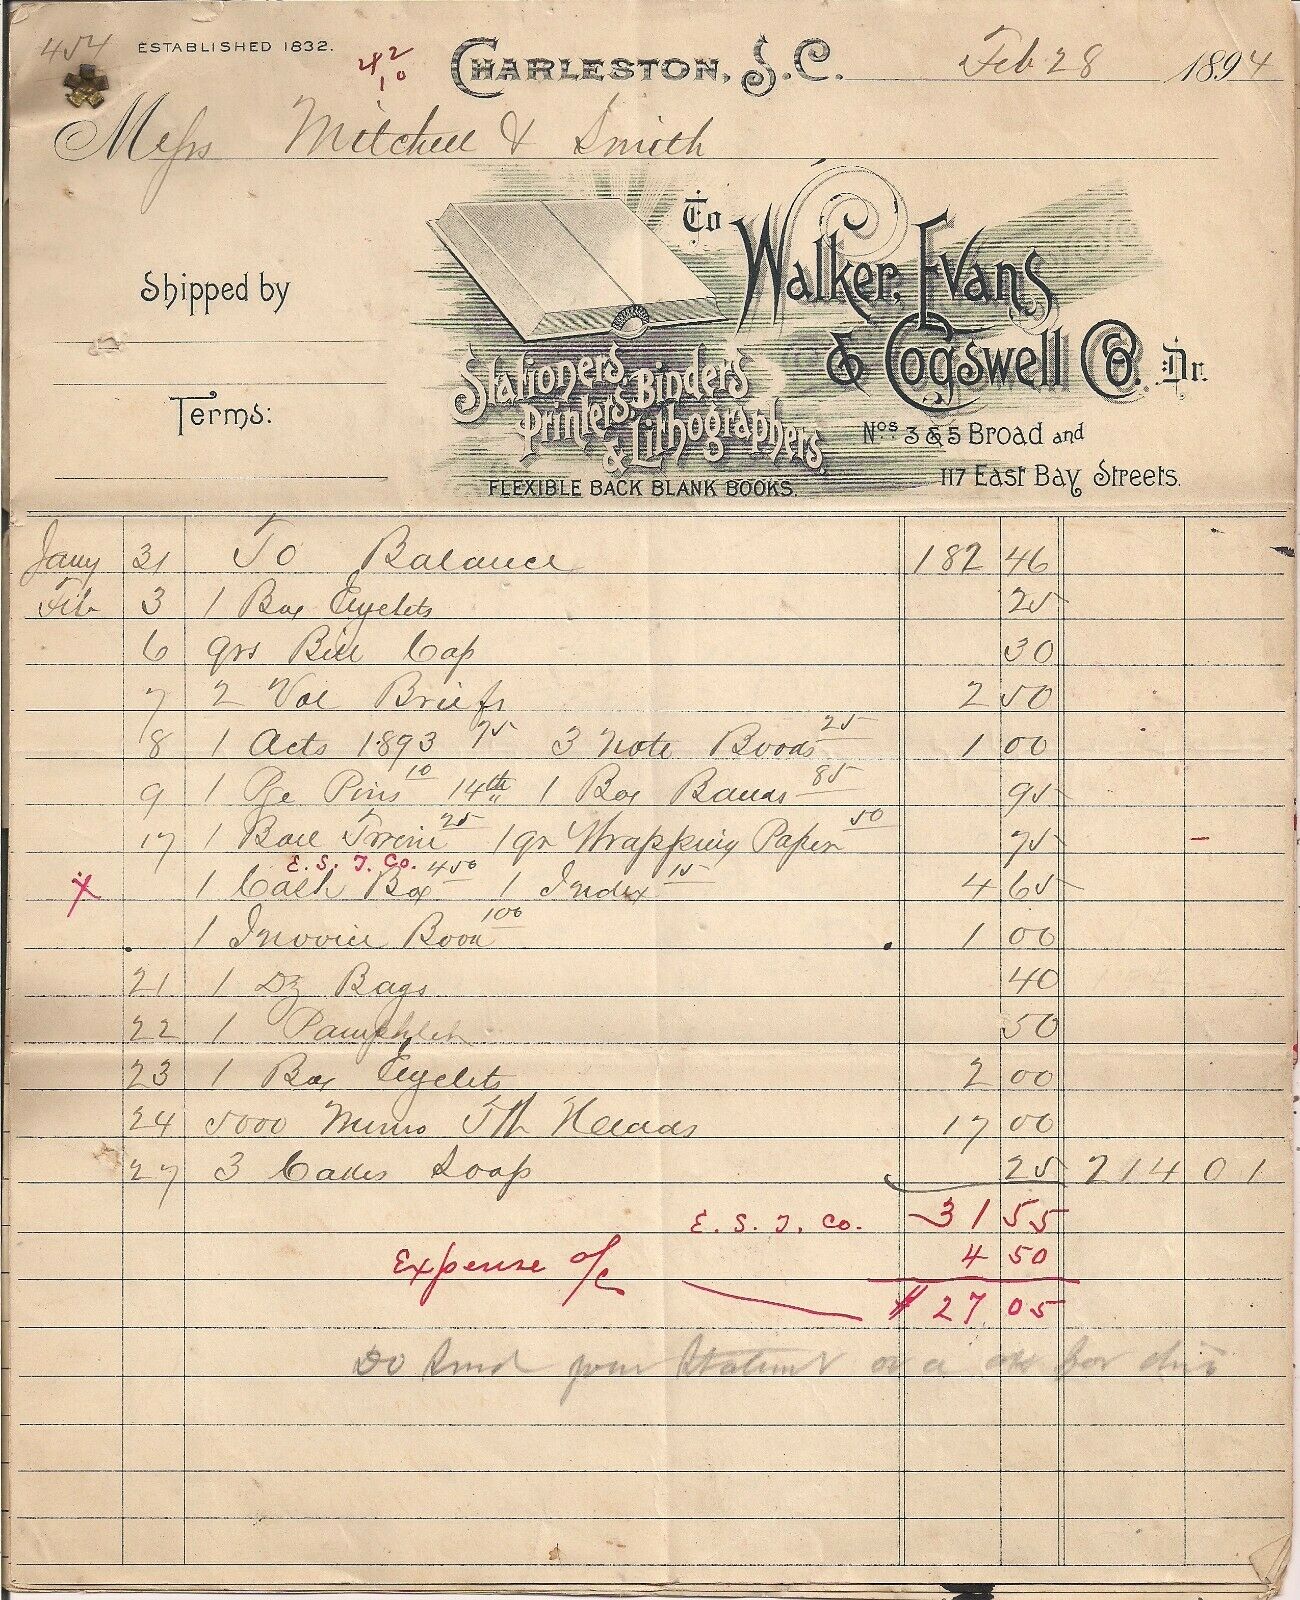 454 ESTABLISHED 1832. 42 10 CHARLESTON, S.C. Feb 28 1894
Messrs Mitchell & Smith
To Walker, Evans
& Cogswell Co. Dr.
Shipped by
Stationers, Binders
Printers, & Lithographers.
Nos 3 & 5 Broad and
117 East Bay Streets.
Terms:
FLEXIBLE BACK BLANK BOOKS.
Jany 31 To Balance 182 46
Feb 3 1 Box Eyelets 25
6 qrs Bill Cap 30
7 2 Vol Briefs 2 50
8 1 Acts 1893 75 3 Note Books 25 1 00
9 1 Pge Pins 10 14th 1 Box Bands 85 95
17 1 Ball Twine 25 1 qr Wrapping Paper 50 75
E. S. T. Co.
x 1 Cash Box 450 1 Index 15 4 65
1 Invoice Book 100 1 00
21 1 Dz Bags 40
22 1 Pamphlet 50
23 1 Box Eyelets 2 00
24 5000 Memo Heads 17 00
27 3 Cakes Soap 25 214 01
31 55
E. S. T. Co. 4 50
Expense a/c $27 05
Do send your statement on a